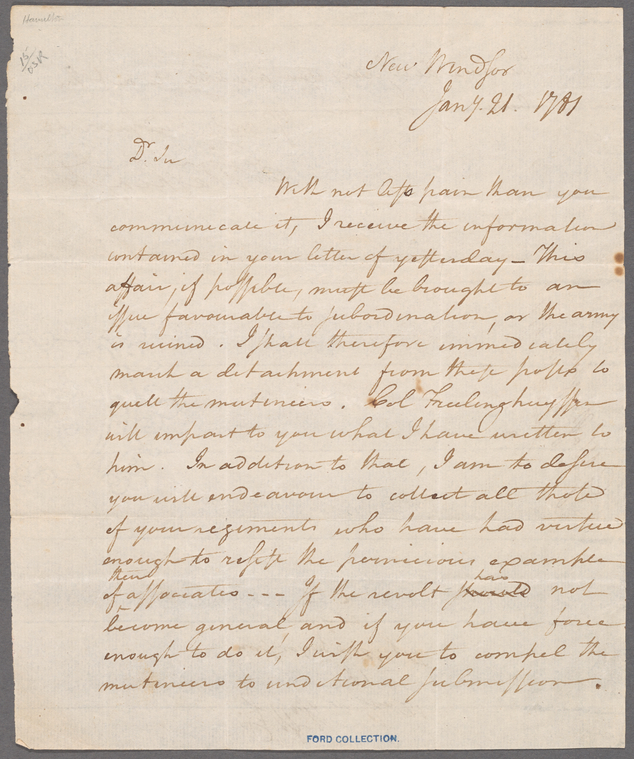 Hamilton
15
OSR
New Windsor
Jany. 21. 1781
Dr. Sir
With not less pain than you
communicate it, I receive the information
contained in your letter of yesterday – This
affair, if possible, must be brought to an
issue favourable to subordination, or the army
is ruined. I shall therefore immediately
march a detachment from these posts to
quell the mutineers. Col Freelinghuyssen
will impart to you what I have written to
him. In addition to that, I am to desire
you will endeavour to collect all those
of your regiments who have had virtue
enough to resist the pernicious example
their
of associates --- If the revolt has not
become general and if you have force
enough to do it, I wish you to compel the
mutineers to unditional submission.
FORD COLLECTION.